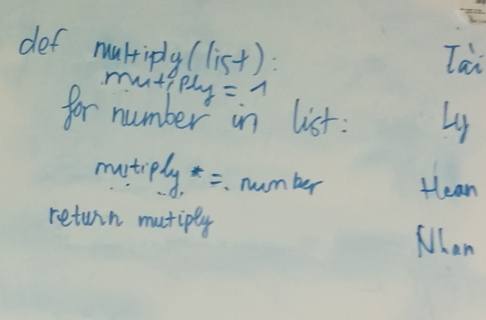 def multiply(list):
mutiply = 1
for number in list:
mutiply *= number
return mutiply
Tài
Ly
Hoan
Nhan